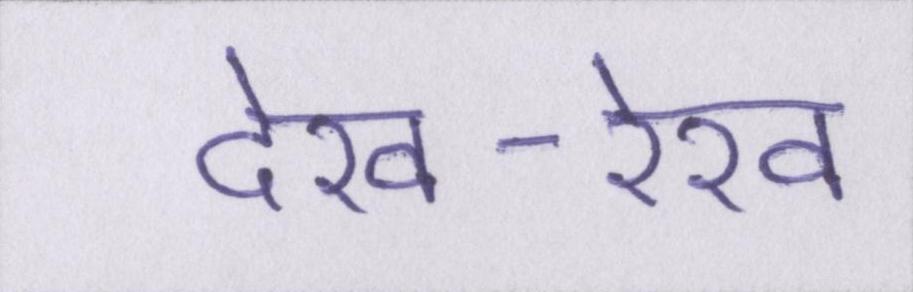 देख-रेख